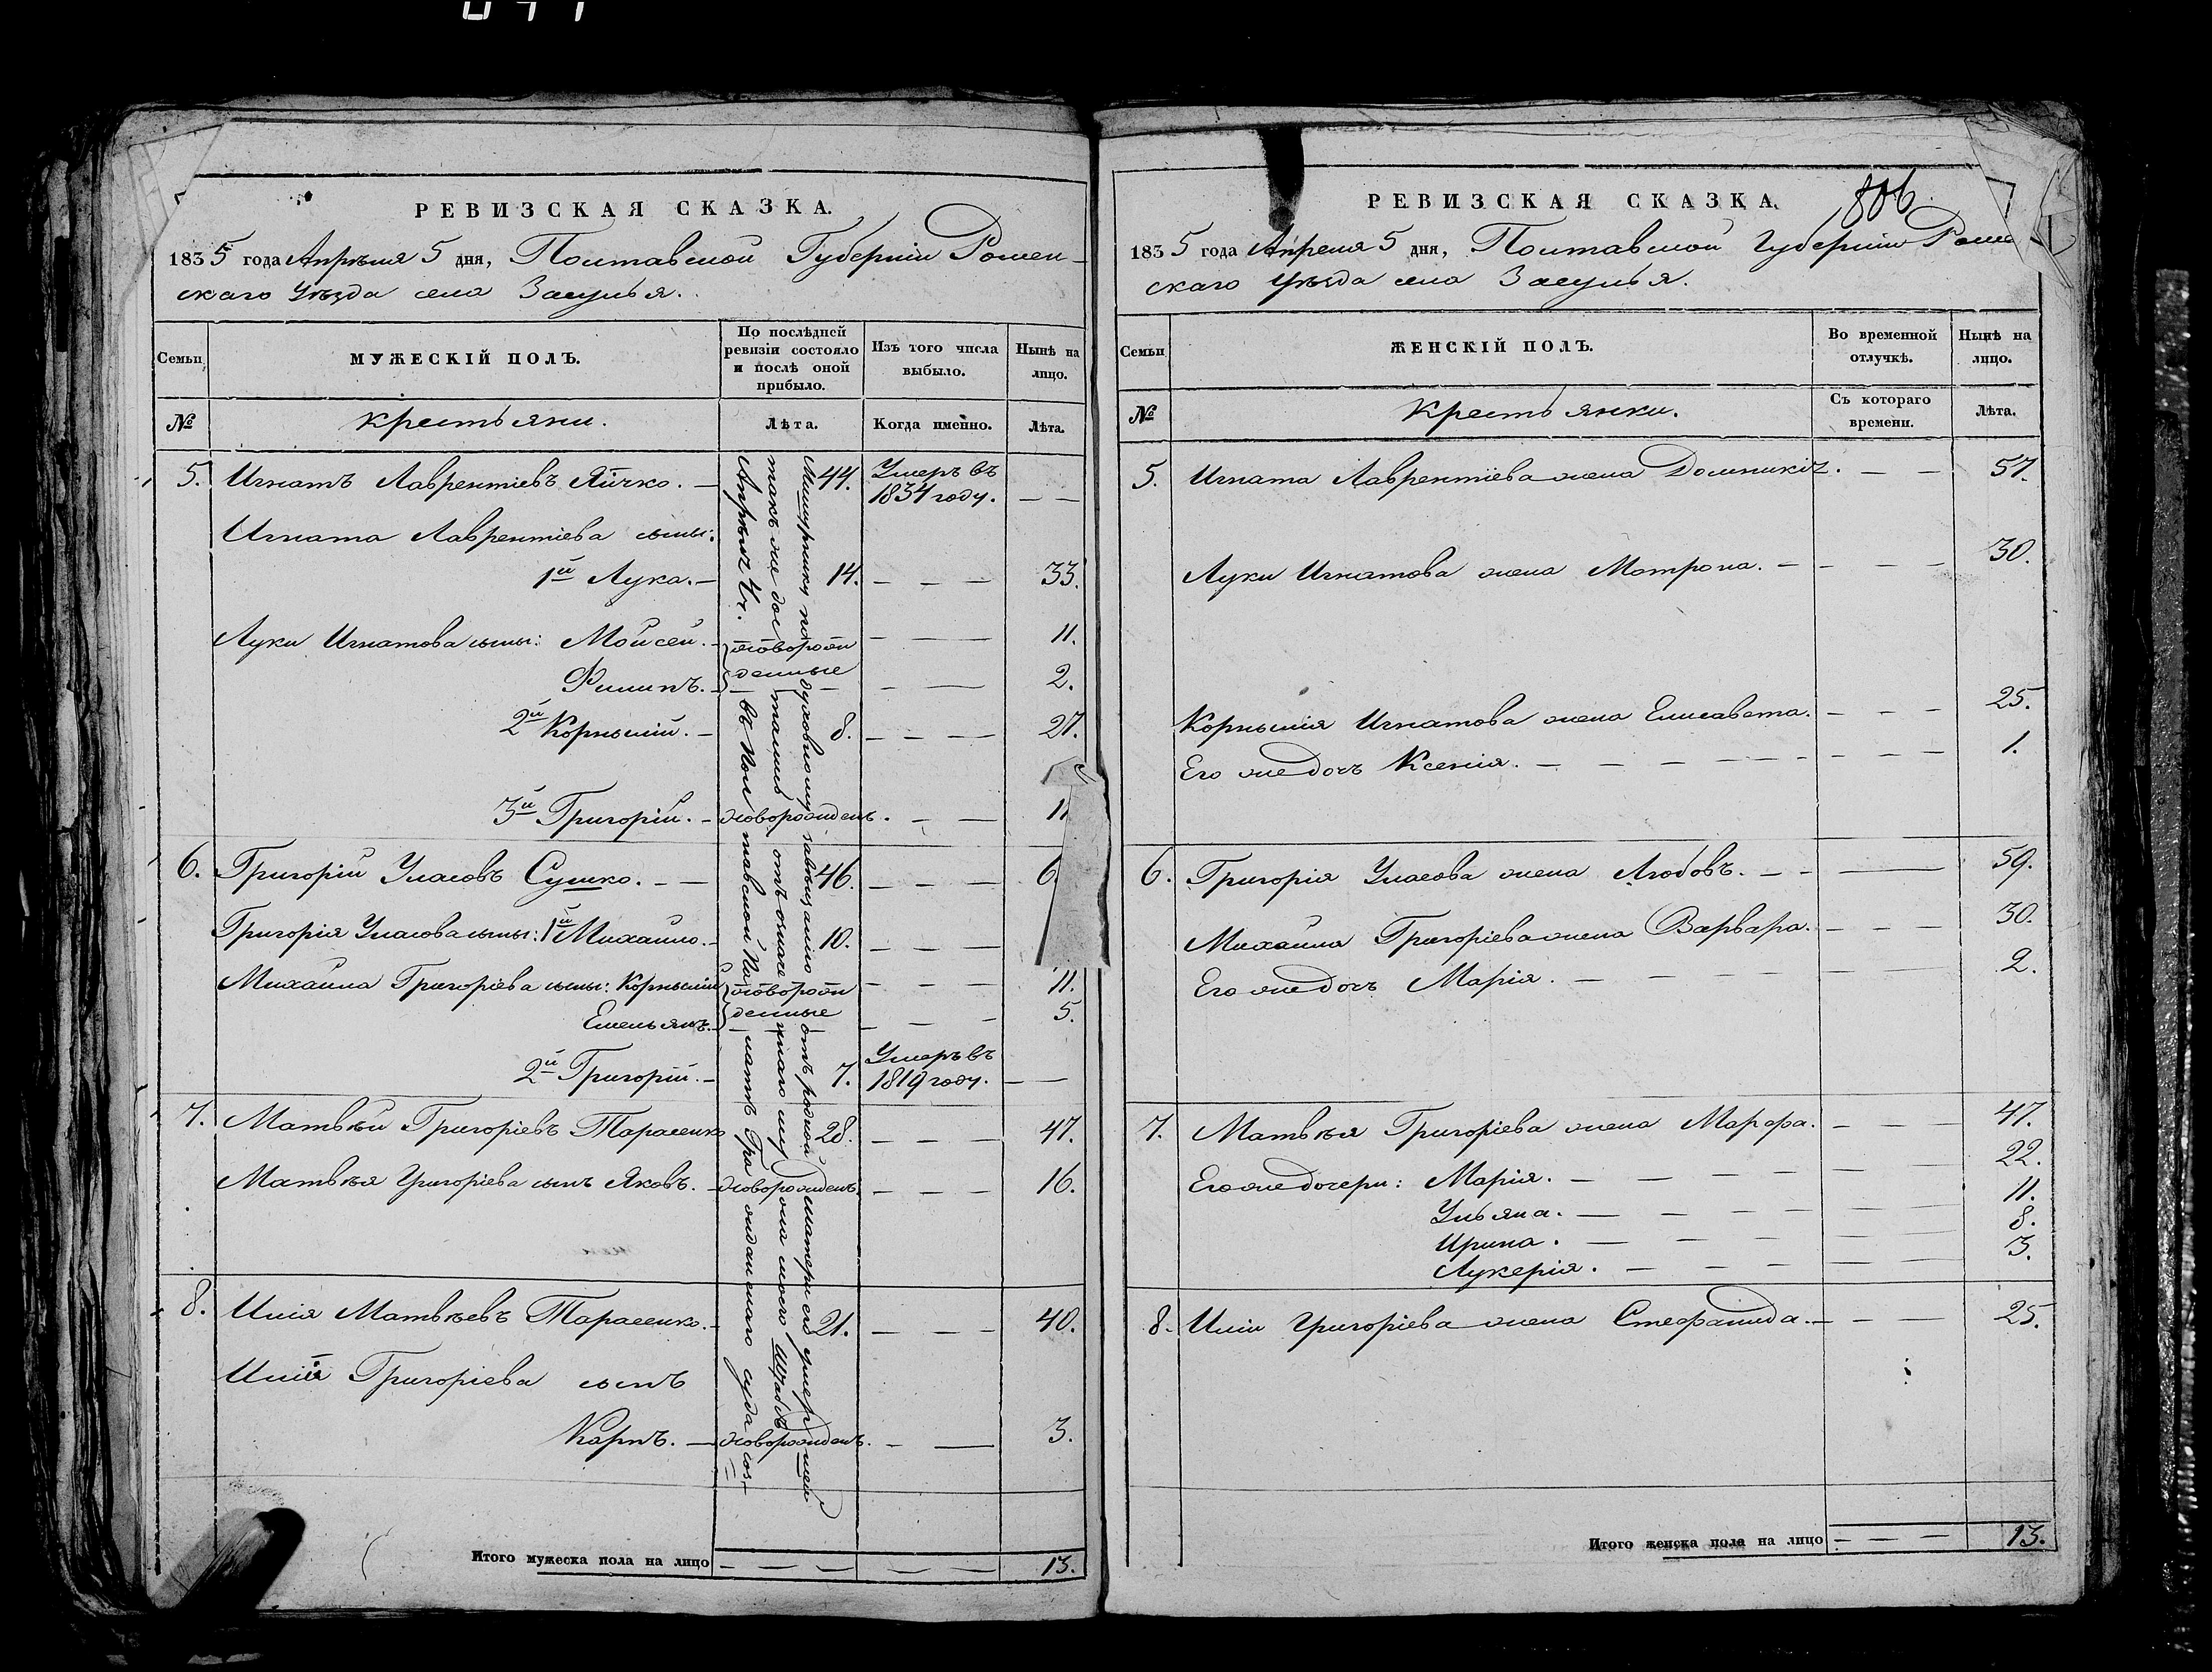 РЕВИЗСКАЯ СКАЗКА.
1835 года Апрѣля 5 дня, Полтавской Губерніи Ромен-
скаго Уѣзда села Засулья.
Семьи
МУЖЕСКІЙ ПОЛЪ.
По послѣдней ревизіи состояло и послѣ оной прибыло.
Изъ того числа выбыло.
Нынѣ на лицо.
№
крестьяни.
Лѣта.
Когда именно.
Лѣта.
5. Игнатъ Лаврентіевъ Яичко. — 44. Умеръ въ 1834 году. — —
Игната Лаврентіева сыны:
1й Лука. — 14. — — — 33.
Луки Игнатова сыны: Мойсей. — новорож — — 11.
Филипъ. — денные — — 2.
2й Корнылій. — 8. — — — 27.
3й Григорій. — новорожденъ. — — 11
6. Григорій Уласовъ Сушко. — — 46. — — — 6
Григорія Уласова сыны: 1й Михайло. — 10. — — —
Михайла Григоріева сыны: Корнылій новорож — — — 11.
Емельянъ. — денные — — — 5.
2й Григорій. — 7. Умеръ въ 1819 году. — —
7. Матвѣй Григоріевъ Тарасенко 28. — — — 47.
Матвѣя Григоріева сынъ Яковъ. — новорожденъ. — — — 16.
8. Илія Матвѣевъ Тарасенко. — 21. — — — 40.
Иліи Григоріева сынъ
Карпъ. — новорожденъ. — — 3.
Мишурнику по духовному завѣщанію отъ родной матери его умершей
такъ же дос тались отъ означе ннаго мужа моего Штабъ
Апрѣля 4 г. въ Пол тавской Па латѣ Гра жданскаго суда сос-
Итого мужеска пола на лицо — — — — — 13.
806
РЕВИЗСКАЯ СКАЗКА.
1835 года Апреля 5 дня, Полтавской Губерніи Роме
скаго Уѣзда села Засулья.
Семьи
ЖЕНСКІЙ ПОЛЪ.
Во временной отлучкѣ.
Нынѣ на лицо.
№
Крестьянки.
Съ котораго времени.
Лѣта.
5. Игната Лаврентіева жена Домникія. — — 57.
Луки Игнатова жена Мотрона. — — — — 30.
Корнылія Игнатова жена Елисавета. — — — 25.
Его же дочь Ксенія. — — — — — — — 1.
6. Григорія Уласова жена Любовь. — — — 59.
Михайла Григоріева жена Варвара. — — — 30.
Его же дочь Марія. — — — — — 2.
7. Матвѣя Григоріева жена Марфа. — — — 47.
Его же дочери: Марія. — — — — — 22.
Ульяна. — — — — — 11.
Ирина. — — — — — 8.
Лукерія. — — — — — 3.
8. Иліи Григоріева жена Стефанида. — — — 25.
Итого женска пола на лицо — — — 13.